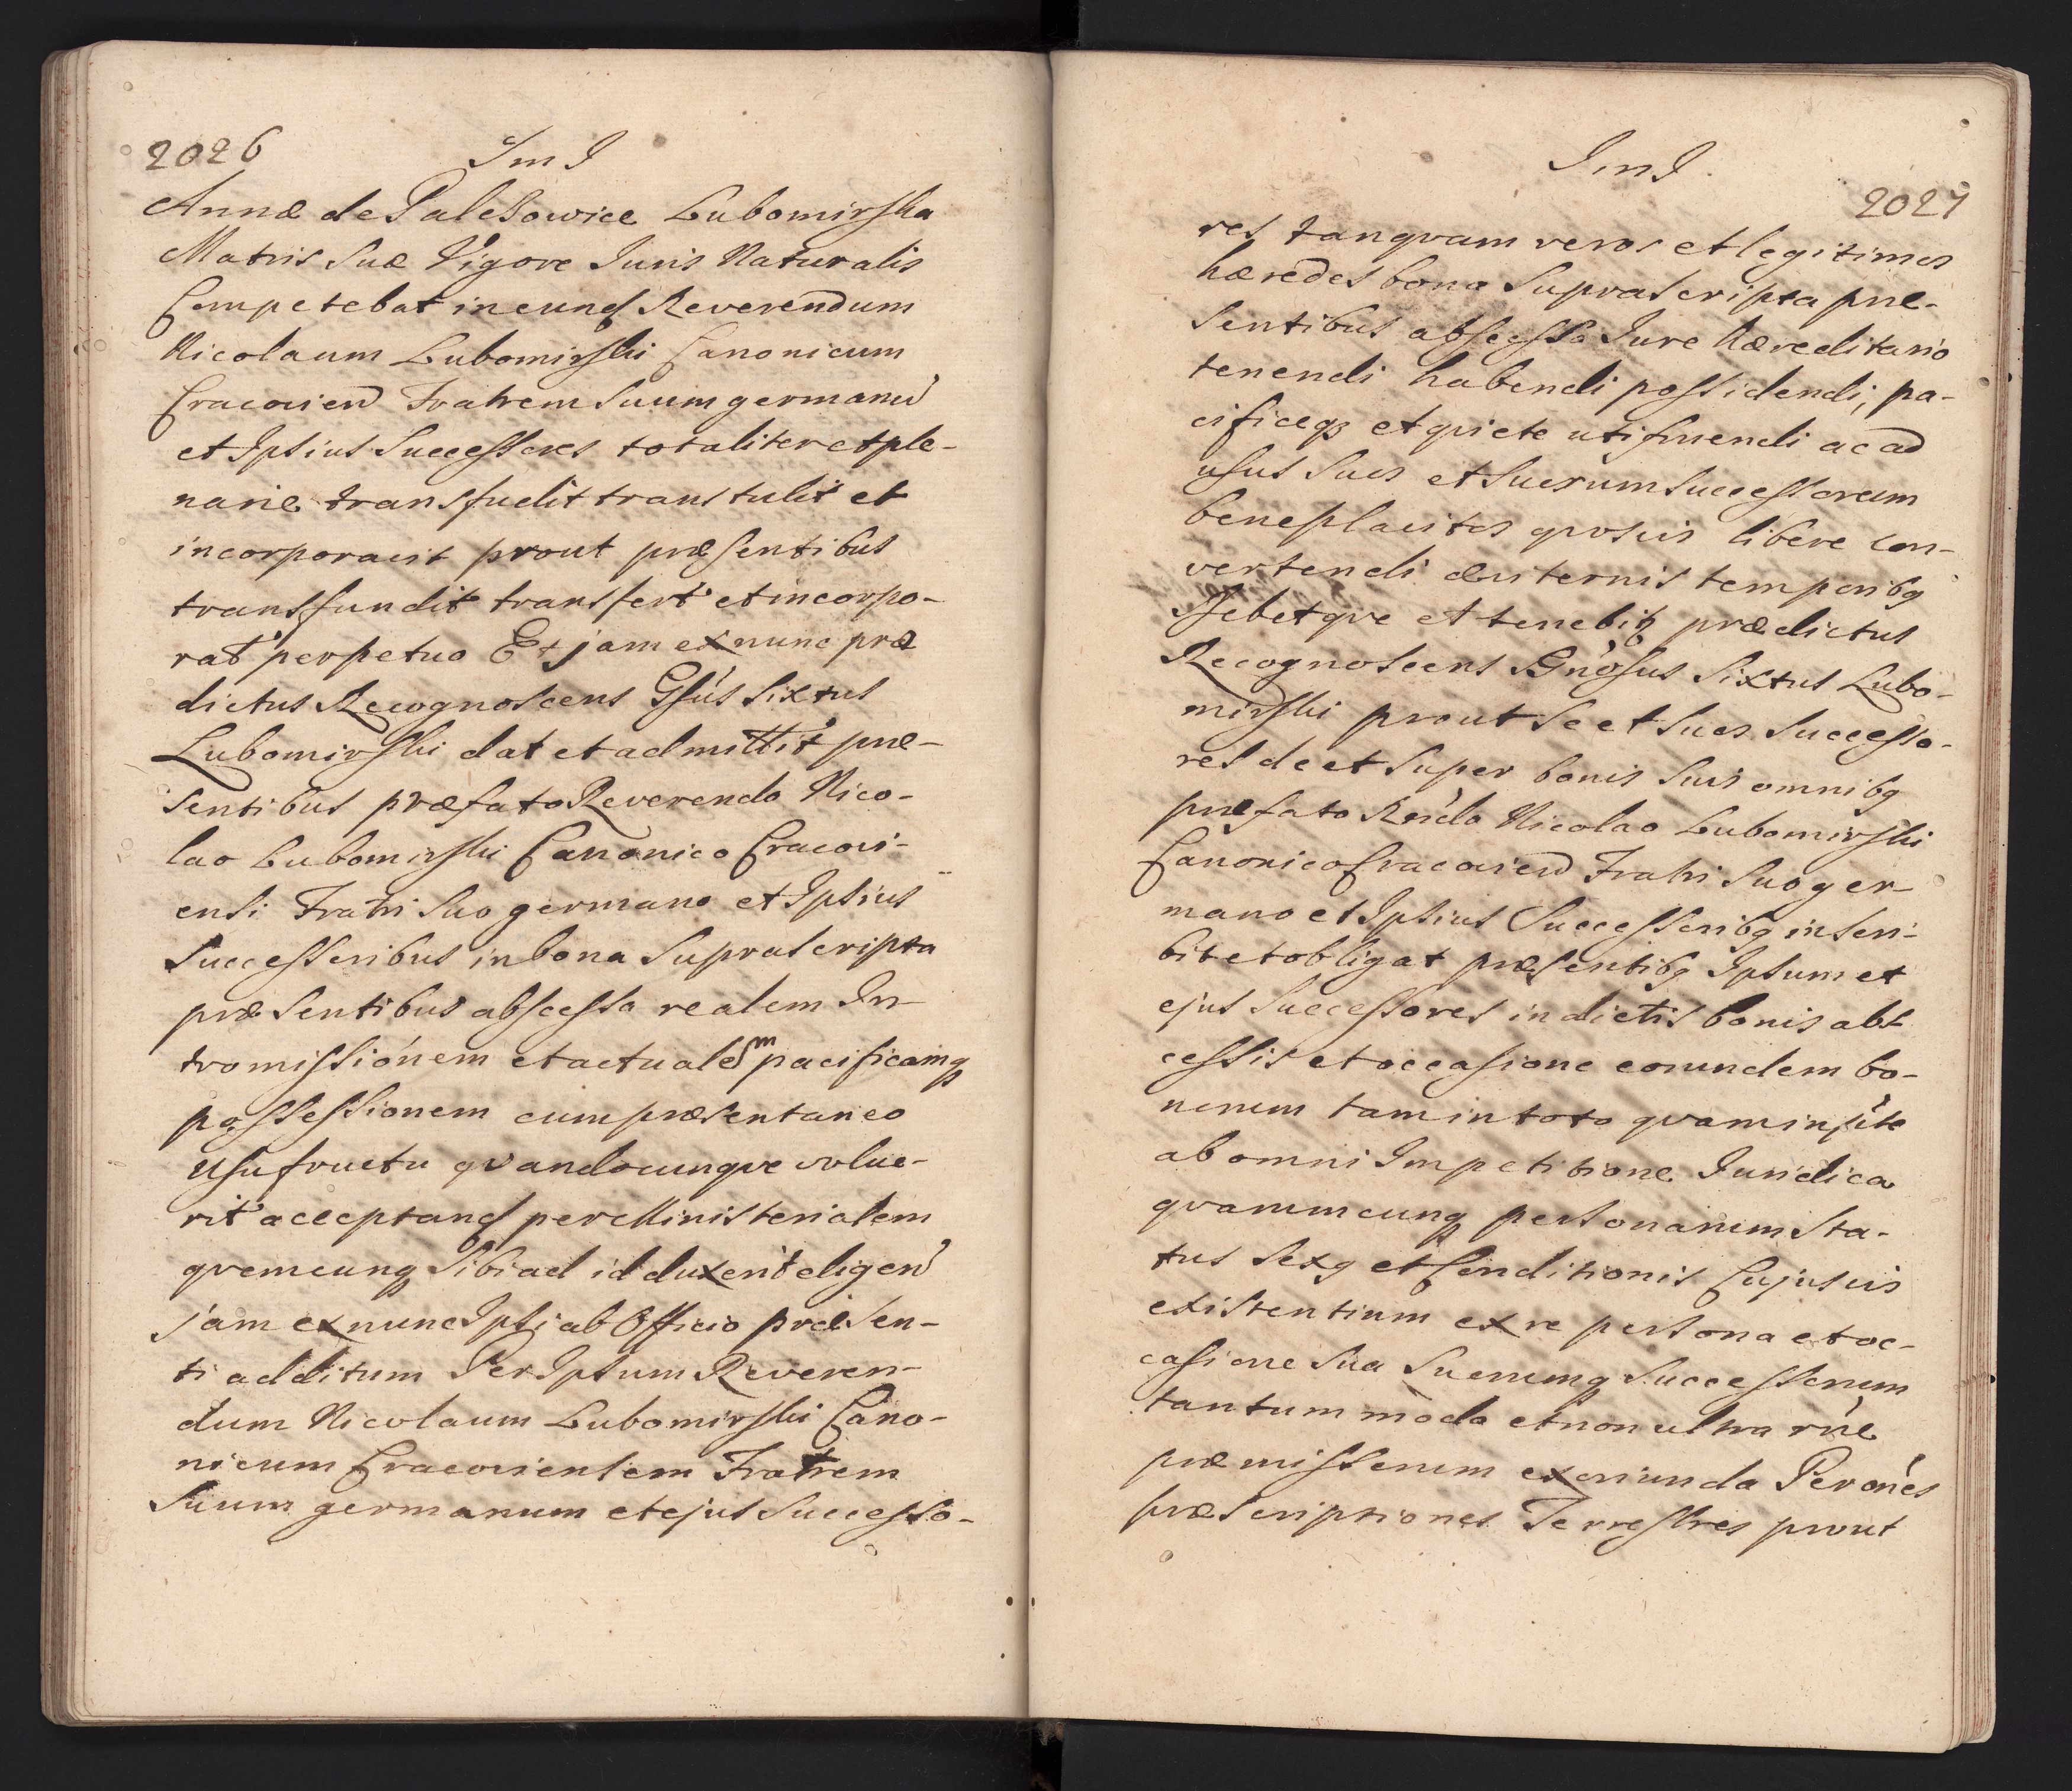 2026
Im I
Annæ de PaleSowice Lubomirska
Matris Suæ Vigore Iuris Naturalis
Competebat in eund Reverendum
Nicolaum Lubomirski Canonicum
Cracovien Fratrem Suum germanu
et Ipsius Successores totaliter et ple-
narie transfudit transtulit et
incorporavit prout præsentibus
transfundit transfert et incorpo-
rat perpetuo Et jam ex nunc præ
dictus Recognoscens Gsus Sixtus
Lubomirski dat et admittit præ-
sentibus præfato Reverendo Nico-
lao Lubomirski Canonico Cracovi-
ensi Fratri Suo germano et Ipsius
Successoribus in bona Suprascripta
præsentibus abscessa realem In-
tromissionem et actualem pacificamq
possessionem cum præsentaneo
Usufructu qvandocunqve volue-
rit acceptand per Ministerialem
qvemcunq Sibi ad id duxerit eligen
jam ex nunc Ipsi ab Officio præsen-
ti additum Per Ipsum Reveren-
dum Nicolaum Lubomirski Cano-
nicum Cracoviensem Fratrem
Suum germanum et ejus Successo-
Im I.
2027
res tanqvam veros et legitimos
hæredes bona Suprascripta præ-
sentibus abscessa Jure hæreditario
tenendi habendi possidendi, pa-
cificeq et qviete utifruendi ac ad
usus Suos et Suorum Successorum
beneplacitos qvosvis libere con-
vertendi æviternis temporibq
Debetqve et tenebit prædictus
Recognoscens Gnosus Sixtus Lubo-
mirski prout Se et Suos Successo-
res de et Super bonis Suis omnibq
præfato Rndo Nicolao Lubomirski
Canonico Cracovien Fratri Suo ger-
mano et Ipsius Successoribq inscri-
bit et obligat præsentibq Ipsum et
ejus Successores in dictis bonis abs
cessis et occasione eorundem bo-
norum tam in toto qvam in pte
ab omni Impetitione Juridica
qvarumcunq personarum Sta-
tus Sexq et Conditionis Cujusvis
existentium ex re persona et oc-
casione Sua Suorumq Successorum
tantum modo et non ultra rne
præmissorum exoriunda Per ones
præscriptiones Terrestres prout